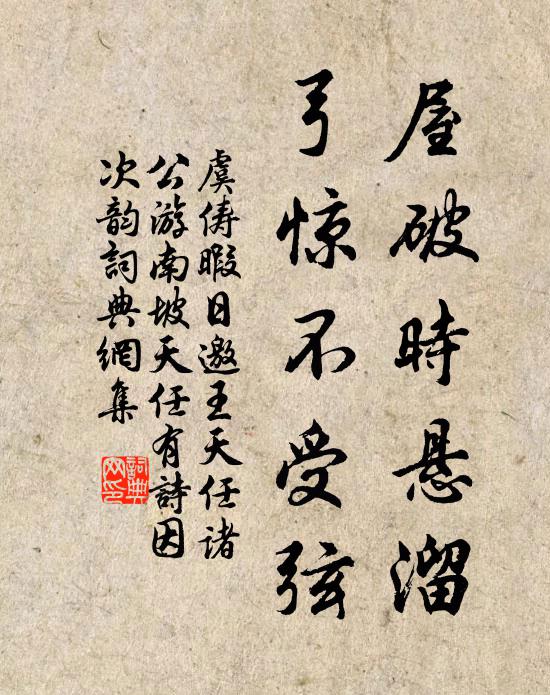 屋破時悬溜
弓惊不受弦
虞俦暇日邀王天任诸
公游南坡天任有詩因
次韵詞典網集
詞典
网印